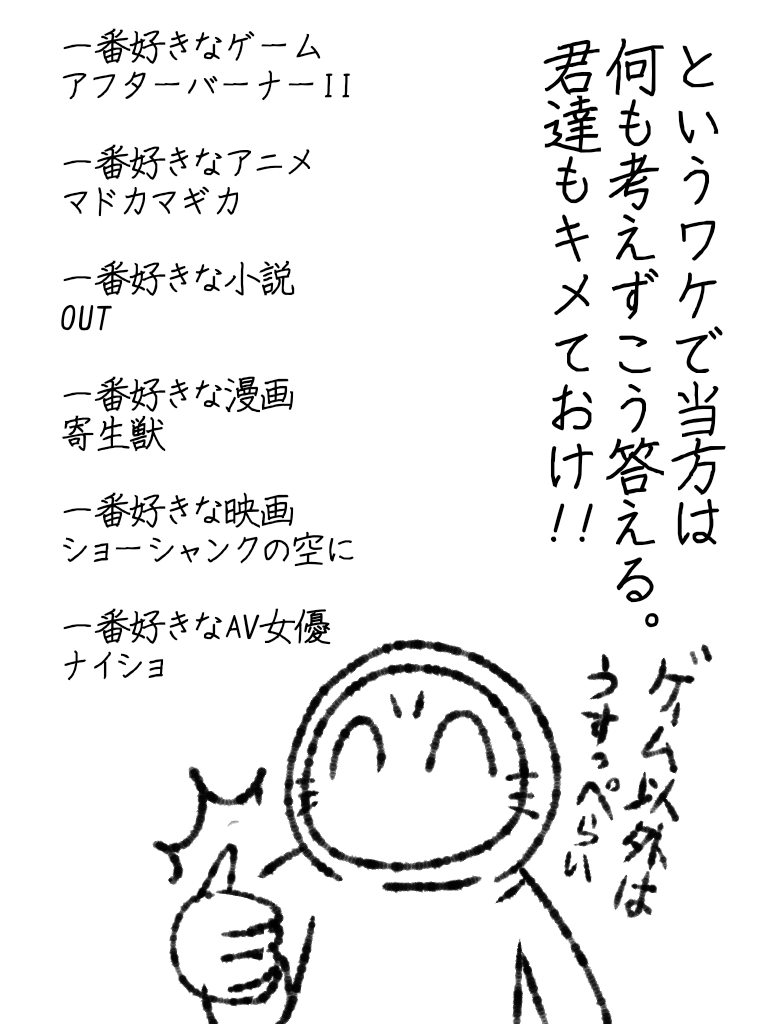 というワケで当方は
何も考えずこう答える。
君達もキメておけ!!
一番好きなゲーム
アフターバーナーII
一番好きなアニメ
マドカマギカ
一番好きな小説
OUT
一番好きな漫画
寄生獣
一番好きな映画
ショーシャンクの空に
一番好きなAV女優
ナイショ
ゲーム以外は
うすっぺらい